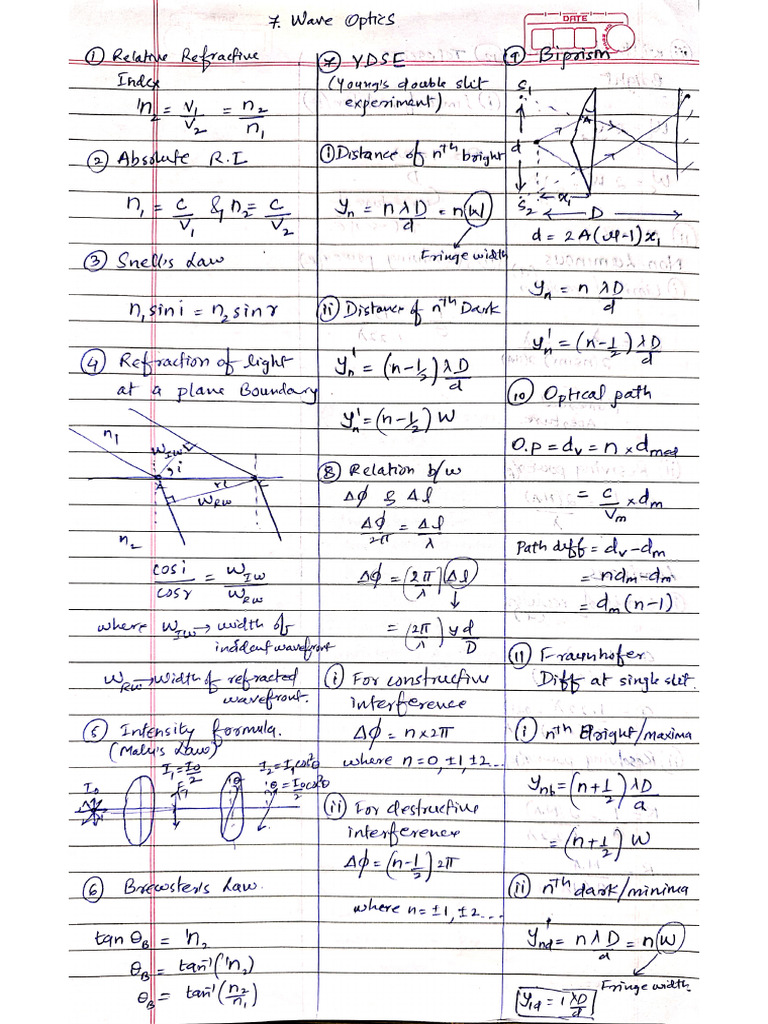 7. Wave Optics
DATE
① Relative Refractive
Index
¹n₂ = v₁/v₂ = n₂/n₁
② Absolute R.I
n₁ = c/v₁ & n₂ = c/v₂
③ Snell's Law
n₁ sin i = n₂ sin r
④ Refraction of light
at a plane Boundary
n₁
W_IW
i
r
W_RW
n₂
cos i/cos r = W_IW/W_RW
where W_IW → width of
incident wavefront
W_RW → width of refracted
wavefront.
⑤ Intensity formula.
(Malu's Law)
I₀
I₁ = I₀/2
θ
I₂ = I₁cos²θ
= I₀/2 cos²θ
⑥ Brewster's Law.
tan θ_B = ¹n₂
θ_B = tan⁻¹(¹n₂)
θ_B = tan⁻¹(n₂/n₁)
⑦ Y.D.S.E
(Young's double slit
experiment)
ⓘ Distance of nth bright
yₙ = nλD/d = n W
Fringe width
ⓘⓘ Distance of nth Dark
yₙ' = (n-1/2) λD/d
yₙ' = (n-1/2) W
⑧ Relation b/w
Δφ & Δl
Δφ/2π = Δl/λ
Δφ = (2π/λ) Δl
= (2π/λ) y d/D
ⓘ For constructive
interference
Δφ = n×2π
where n=0,±1,±2...
ⓘⓘ For destructive
interference
Δφ = (n-1/2) 2π
where n=±1,±2...
⑨ Biprism
S₁
A
d
S₂
x₁
D
d = 2A(μ-1)x₁
yₙ = n λD/d
yₙ' = (n-1/2) λD/d
⑩ Optical path
O.P = dᵥ = n × d_med
= c/vₘ × dₘ
Path diff = dᵥ - dₘ
= ndₘ - dₘ
= dₘ(n-1)
⑪ Fraunhofer
Diff at single slit.
ⓘ nth Bright/maxima
y_nb = (n+1/2) λD/a
= (n+1/2) W
ⓘⓘ nth dark/minima
y_nd' = nλD/a = n W
Fringe width